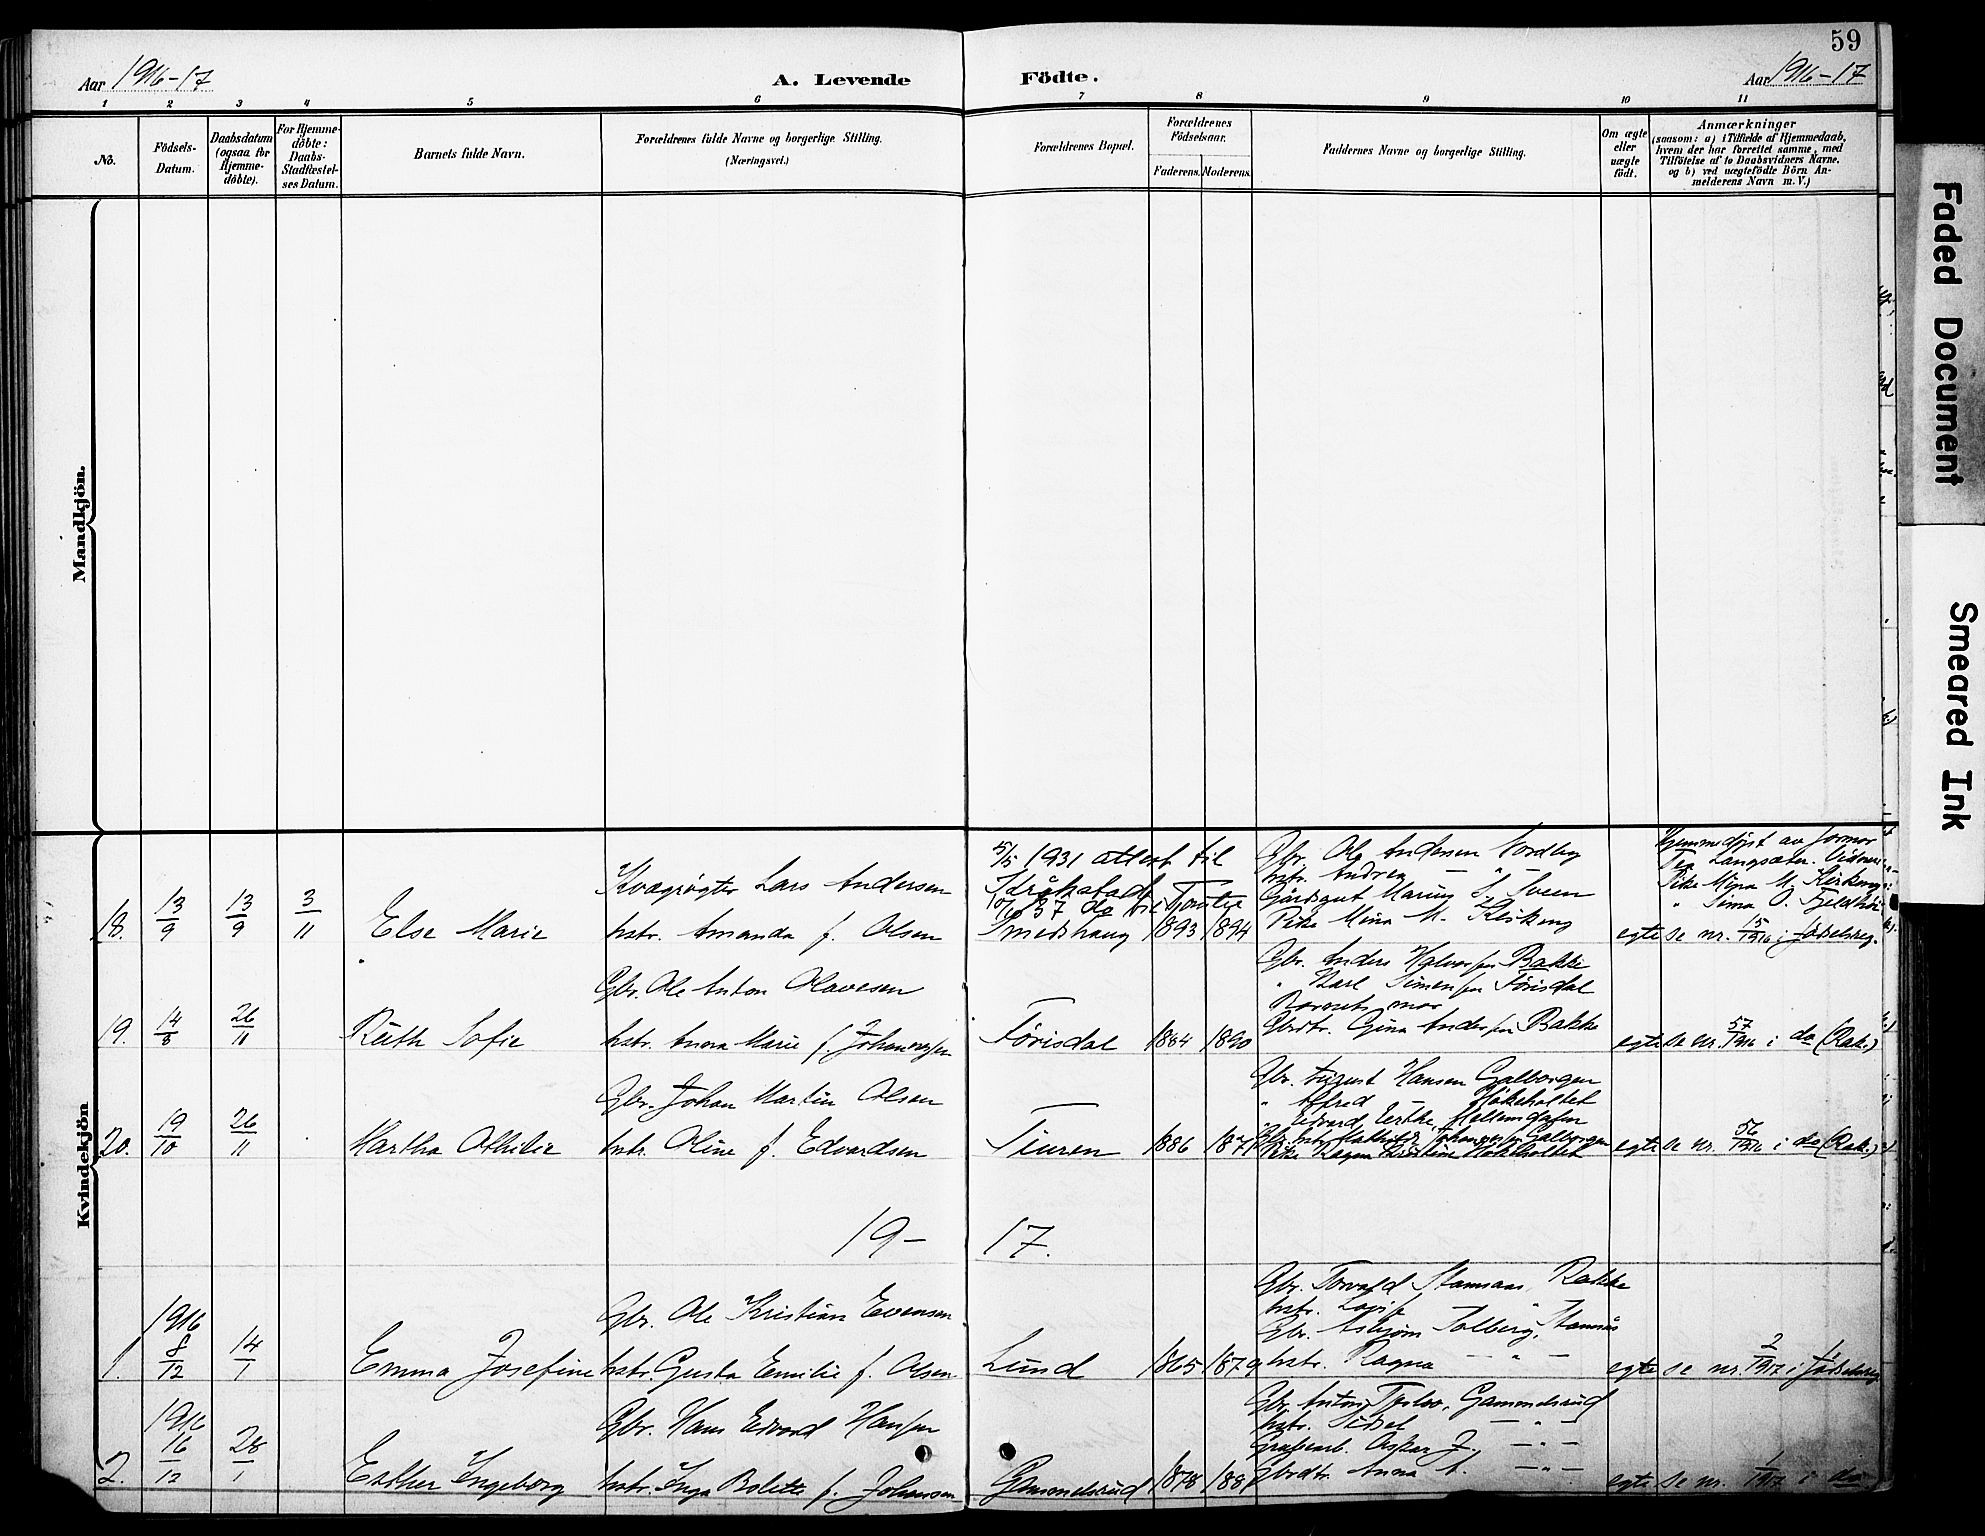 59
Aar 1916-17
A. Levende Födte.
Aar 1916-17
1 2 3 4 5 6 7 8 9 10 11
No.
Födsels-
Datum.
Daabsdatum
(ogsaa for
Hjemme-
döbte).
For Hjemme-
döbte:
Daabs-
Stadfæstel-
ses Datum.
Barnets fulde Navn.
Forældrenes fulde Navne og borgerlige Stilling.
(Næringsvei.)
Forældrenes Bopæl.
Forældrenes
Födselsaar.
Faderens. Moderens.
Faddernes Navne og borgerlige Stilling.
Om ægte
eller
uægte
födt.
Anmærkninger
(saasom: a) i Tilfælde af Hjemmedaab,
hvem der har forrettet samme, med
Tilföielse af to Daabsvidners Navne,
og b) ved uægtefödte Börn An-
melderens Navn m. V.)
Mandkjön.
Kvindekjön
18. 13/9 13/9 3/11 Else Marie
Kvægrøgter Lars Andersen
hstr. Amanda f. Olsen
5/5 1931 attest til
Kråkstad
Smedshaug 1893 1894
Gbr. Ole Andersen Nordby
hstr. Andrea — " —
Gårdsgut Marius S. Sveen
Pike Mina M. Kirkeng
egte
Hjemmedøpt av formor
Tea Langsæter. Vidner:
Pike Mina M. Kirkeng
se nr. 15/1916 i fødselsreg.
19. 14/8 26/11 Ruth Sofie
Gbr. Ole Anton Olavesen
hstr. Anna Marie f. Johannessen
Førisdal 1884 1890
Gbr. Anders Halvorsen Bakke
" Karl Simensen Førisdal
Barnets mor
Gbrdtr. Gina Andersen Bakke
egte se nr. 57/1916 i do (Rak.)
20. 19/10 26/11 Martha Othilie
Gbr. Johan Martin Olsen
hstr. Oline f. Edvardsen
Tiuren 1886 187
Gbr. August Hansen Galborgen
" Alfred Høkeholtet
Pike Ragna Kristine Høkeholtet
egte se nr. 56/1916 i do (Rak.)
19- 17.
1. 1916 8/12 14/1 Emma Josefine
Gbr. Ole Kristian Evensen
hstr. Gusta Emilie f. Olsen
Lund 1865 1879
Gbr. Torvald Stamsaas, Rakke
hstr. Lovise "
Gbr. Asbjørn Solberg, Stamsås
hstr. Ragna — " —
egte se nr. 2/1917 i fødselsreg
2. 1916 16/12 28/1 Esther Ingeborg
Gbr. Hans Edvard Hansen
hstr. Inga Bolette f. Johansen
Gammelsrud 1878 188
Gbr. Anton Gammelsrud
hstr. Sidsel — " —
Grubearb. Oskar J. — " —
Gbrdtr. Anna A. — " —
egte se nr. 1/1917 i do
Faded Document
Smeared Ink